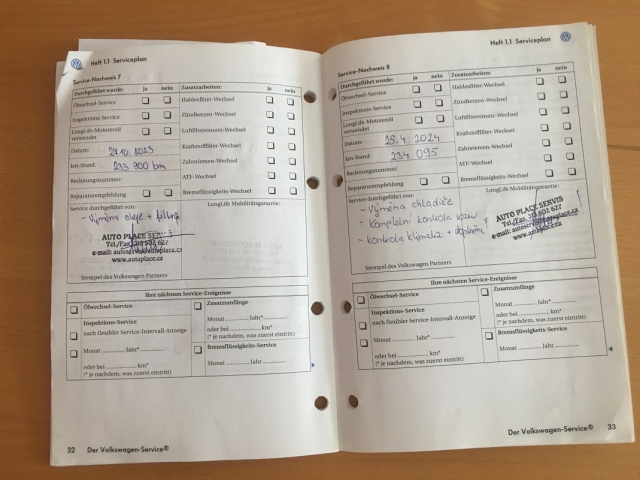 Heft 1.1 Serviceplan
Service-Nachweis 7
Durchgeführt wurde: ja nein Zusatzarbeiten: ja nein
Ölwechsel-Service Pollenfilter-Wechsel
Inspektions-Service Zündkerzen-Wechsel
LongLife-Motorenöl verwendet Luftfiltereinsatz-Wechsel
Datum: Kraftstofffilter-Wechsel
km-Stand: 233 900 km Zahnriemen-Wechsel
Rechnungsnummer: ATF-Wechsel
Reparaturempfehlung Bremsflüssigkeits-Wechsel
Service durchgeführt von: LongLife Mobilitätsgarantie:
- Výměna oleje + filtrů
AUTO PLACE
Tel./Fax
www.autoplace.cz
Stempel des Volkswagen Partners
Ihre nächsten Service-Ereignisse
Ölwechsel-Service
Zusatzumfänge
Inspektions-Service
Monat Jahr*
nach flexibler Service-Intervall-Anzeige
oder bei km*
(* je nachdem, was zuerst eintritt)
Monat Jahr*
Bremsflüssigkeits-Service
oder bei km*
Monat Jahr
(* je nachdem, was zuerst eintritt)
32 Der Volkswagen-Service®
Heft 1.1 Serviceplan
Service-Nachweis 8
Durchgeführt wurde: ja nein Zusatzarbeiten: ja nein
Ölwechsel-Service
Inspektions-Service Zündkerzen-Wechsel
LongLife-Motorenöl verwendet Luftfiltereinsatz-Wechsel
Datum: 25.4. 2024 Kraftstofffilter-Wechsel
km-Stand: 234 095 Zahnriemen-Wechsel
Rechnungsnummer: ATF-Wechsel
Reparaturempfehlung Bremsflüssigkeits-Wechsel
Service durchgeführt von: LongLife Mobilitätsgarantie:
- Výměna chladiče
- kompletní kontrola vozu
- kontrola klimatizace + doplnění
AUTO PLACE SERVIS
www.autoplace.cz
Stempel des Volkswagen Partners
Ihre nächsten Service-Ereignisse
Ölwechsel-Service
Zusatzumfänge
Inspektions-Service
Monat Jahr*
nach flexibler Service-Intervall-Anzeige
oder bei km*
(* je nachdem, was zuerst eintritt)
Monat Jahr*
Bremsflüssigkeits-Service
oder bei km*
Monat Jahr
(* je nachdem, was zuerst eintritt)
Der Volkswagen-Service® 33